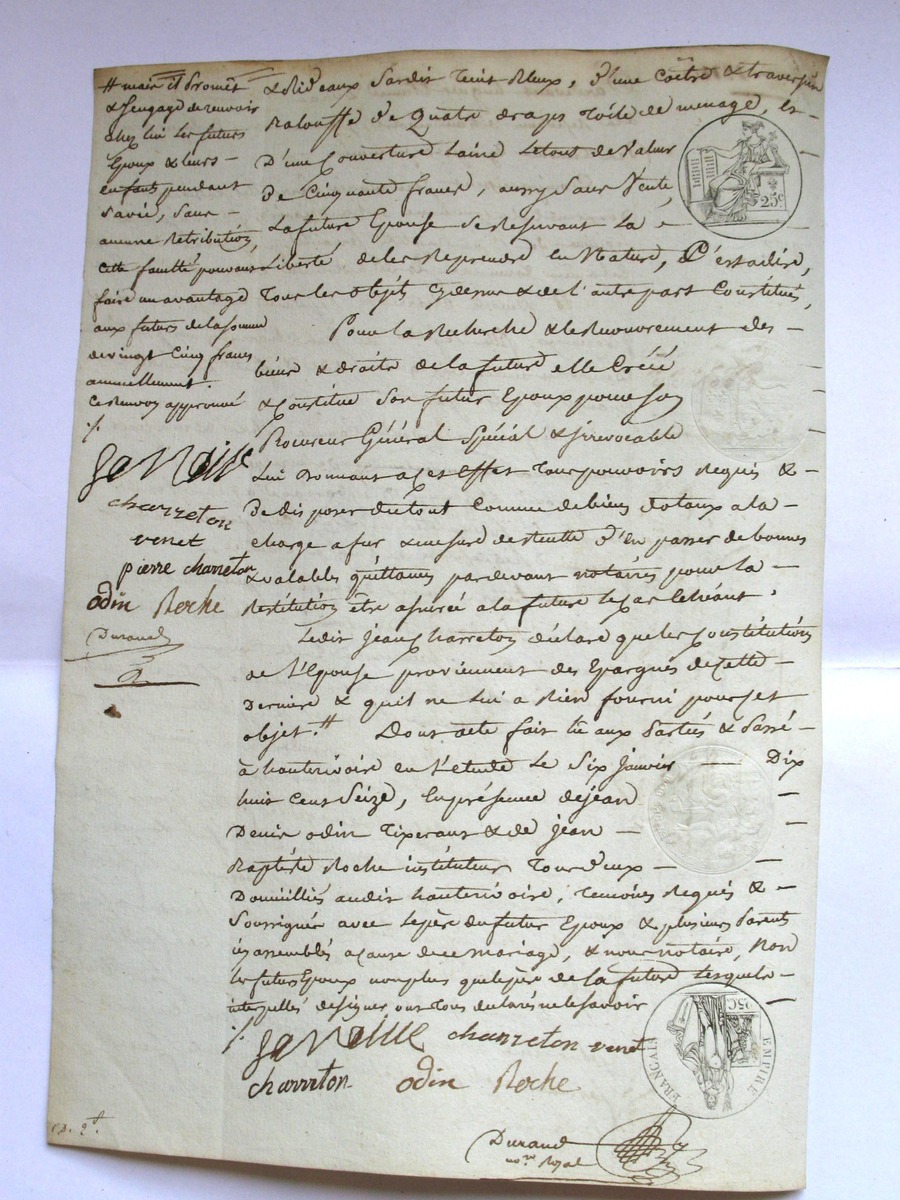 # mais il promet
& s'engage de recevoir
chez lui les futurs
Epoux & leurs
enfants pendant
sa vie, sans
aucune Retribution,
cette faculté pouvant
faire un avantage
aux futurs de la somme
de vingt Cinq francs
annuellement.
Ce Renvoy approuvé
./.
charreton
venet
pierre charreton
odin Roche
Durand
& Rideaux Sardis teint bleux, d'une & traversier
Baloufse de Quatre draps Toile de menage, et
D'une Couverture Laine Le tout de Valeur
De Cinquante francs, aussy Sans Vente,
La future Epouse Se Reservant La
Liberté de les Reprendre En Nature, C'est a dire,
Tous les objets cy dessus & de l'autre part Constitués,
Pour la Recherche & le Recouvrement des
biens & droits de la future elle Créé
& Constitue Son futur Epoux pour Son
Procureur Général Spécial & irrevocable
Lui donnant a Cet Effet Tous pouvoirs Requis &
De disposer du tout Comme de biens dotaux a la
charge a fur & mesure de d'En passer de bonnes
& valables quittances par devant notaires pour la
Restitution être assurée a la future le Cas Echéant.
Ledit jean Charreton déclare que les Constitutions
de l'Epouse proviennent des Epargnes de Cette
Derniere & qu'il ne Lui a Rien fourni pour Cet
objet.# Dont acte fait lû aux Parties & Passé
à hauterivoire en l'etude Le Six Janvier Dix
huit Cent Seize, En présence de jean
Denis odin Tixerant & de jean
Baptiste Roche instituteur Tous deux
Domiciliés audit hauterivoire, Temoins Requis &
Soussignés avec Le père du futur Epoux & plusieurs Parents
icy assemblés a Cause de ce mariage, & nous notaire, Non
les futurs Epoux non plus que le père de la future Lesquels
interpellés de signer ont Tous declaré ne le Savoir
./. charreton venet
charreton odin Roche
Durand
no.re Royal
25c
25C
EMPIRE FRANÇAIS